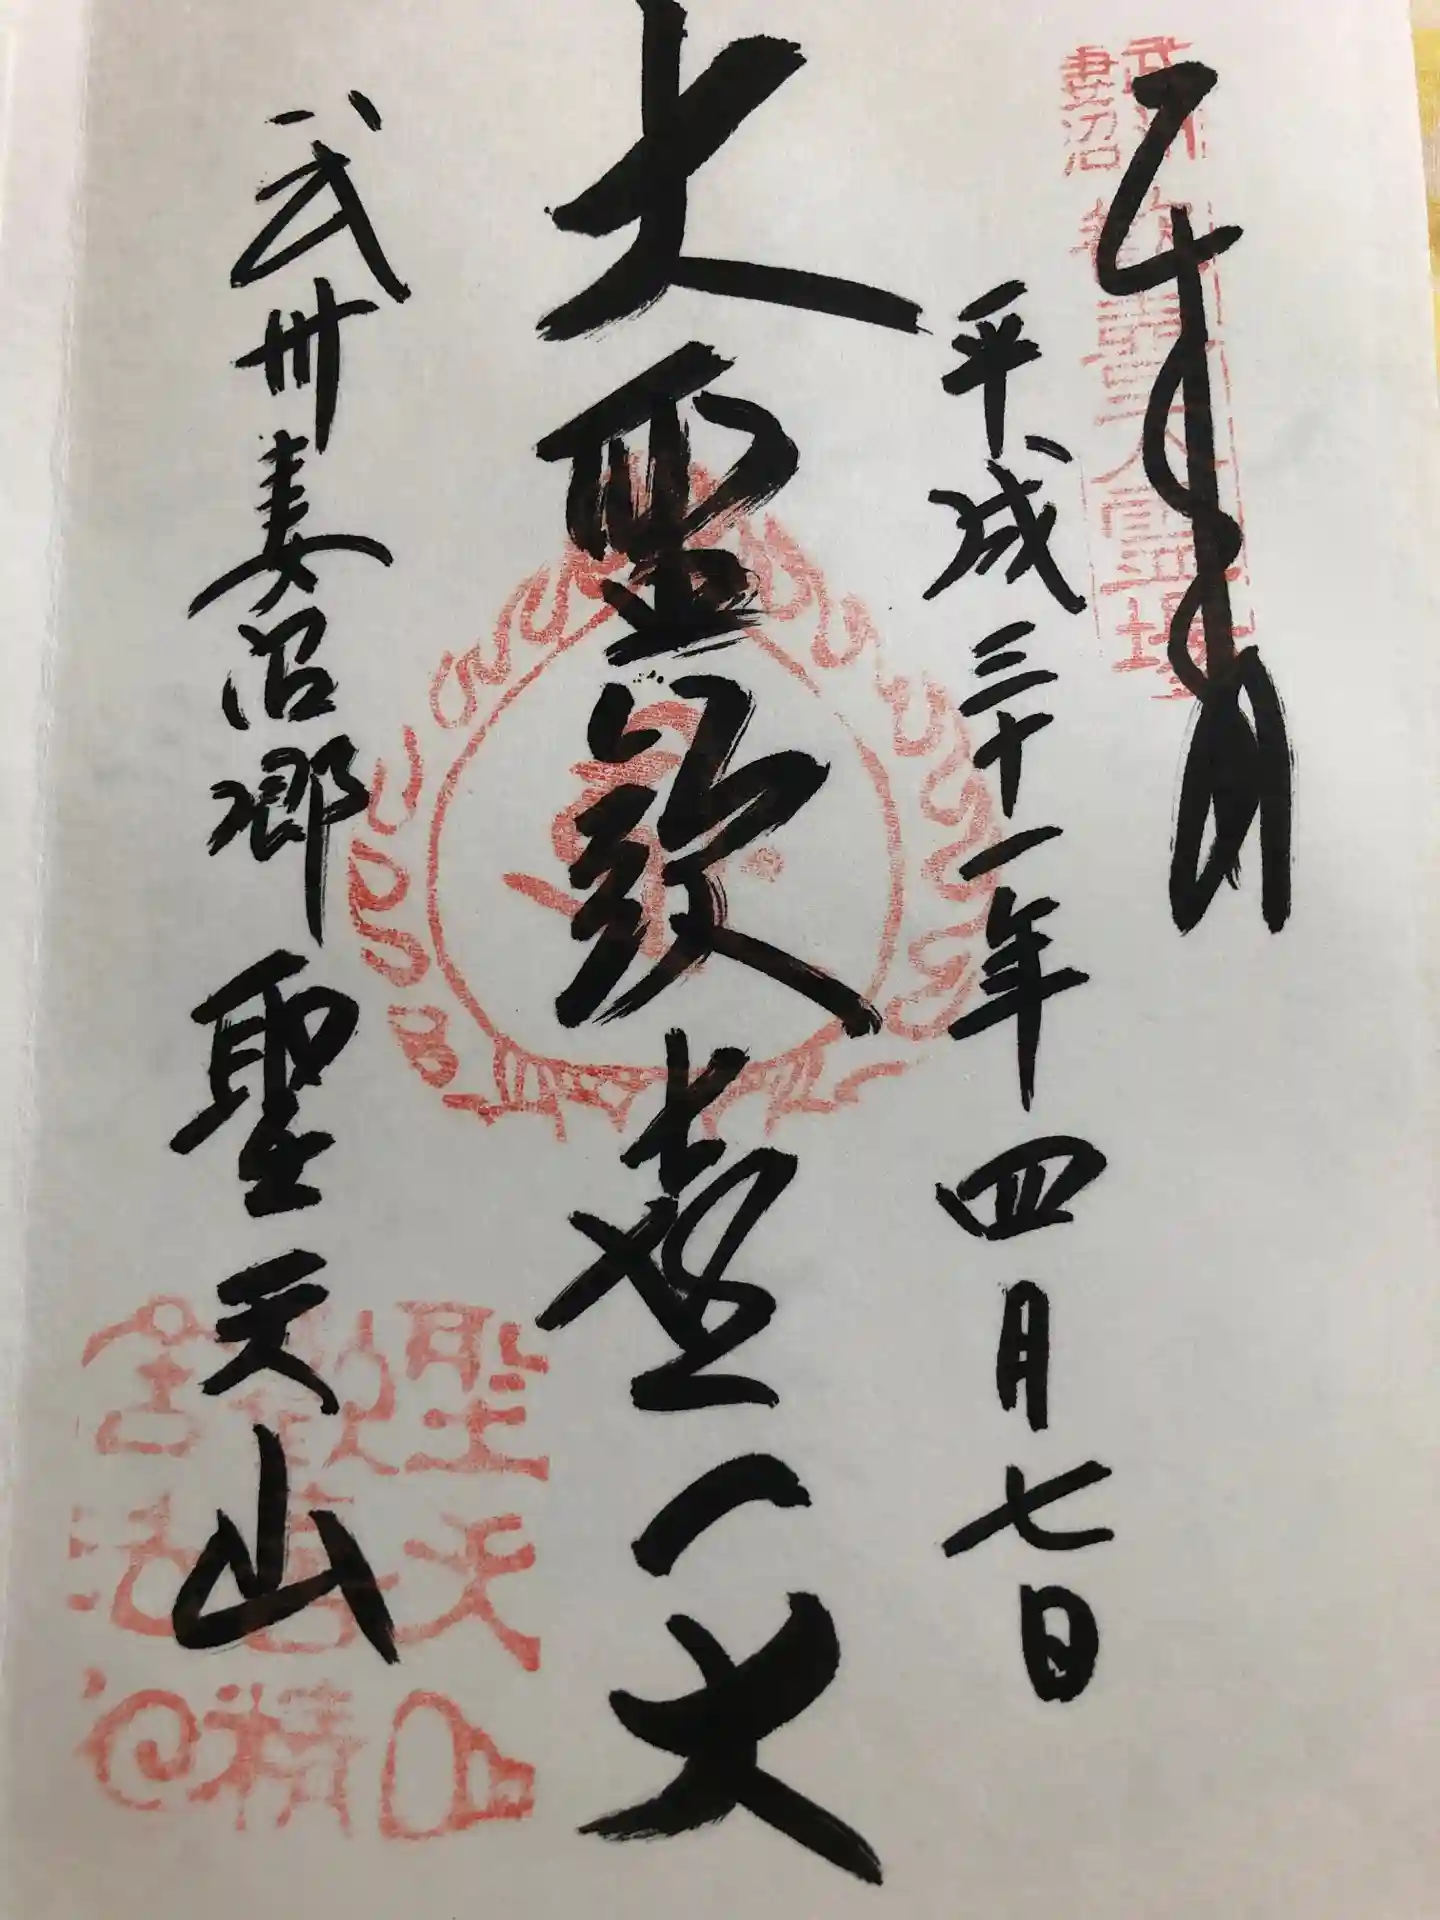 奉拝
平成三十一年四月七日
大聖歓喜天
武州妻沼郷聖天山
武州
妻沼
歓喜聖天霊場
聖天
歓喜